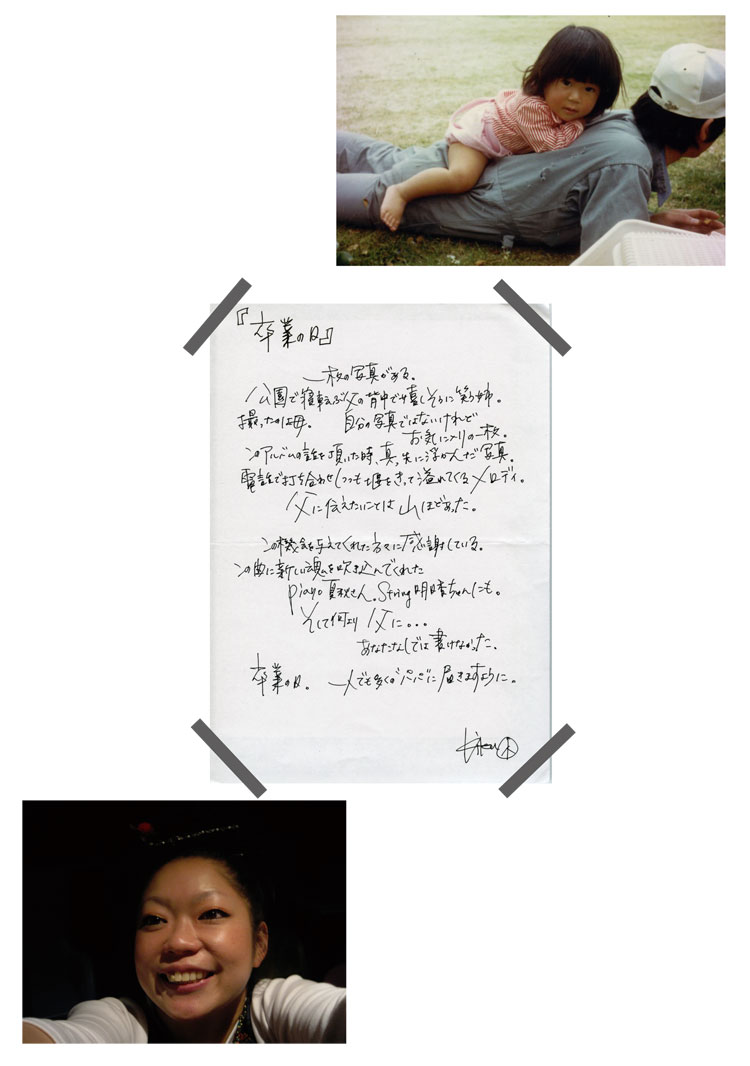 『卒業の日』
一枚の写真がある。
公園で寝転ぶ父の背中で嬉しそうに笑う姉。
撮ったのは母。 自分の写真ではないけれど
お気に入りの一枚。
このアルバムの話を頂いた時、真っ先に浮かんだ写真。
電話で打ち合わせしつつも堰をきって溢れてくるメロディ。
父に伝えたいことは山ほどあった。
この機会を与えてくれた方々に感謝している。
この曲に新しい魂を吹き込んでくれた
piano 夏秋さん。String 明日香ちゃんにも。
そして何より父に...
あなたなしでは書けなかった。
卒業の日。 一人でも多くの“パパ”に届きますように。